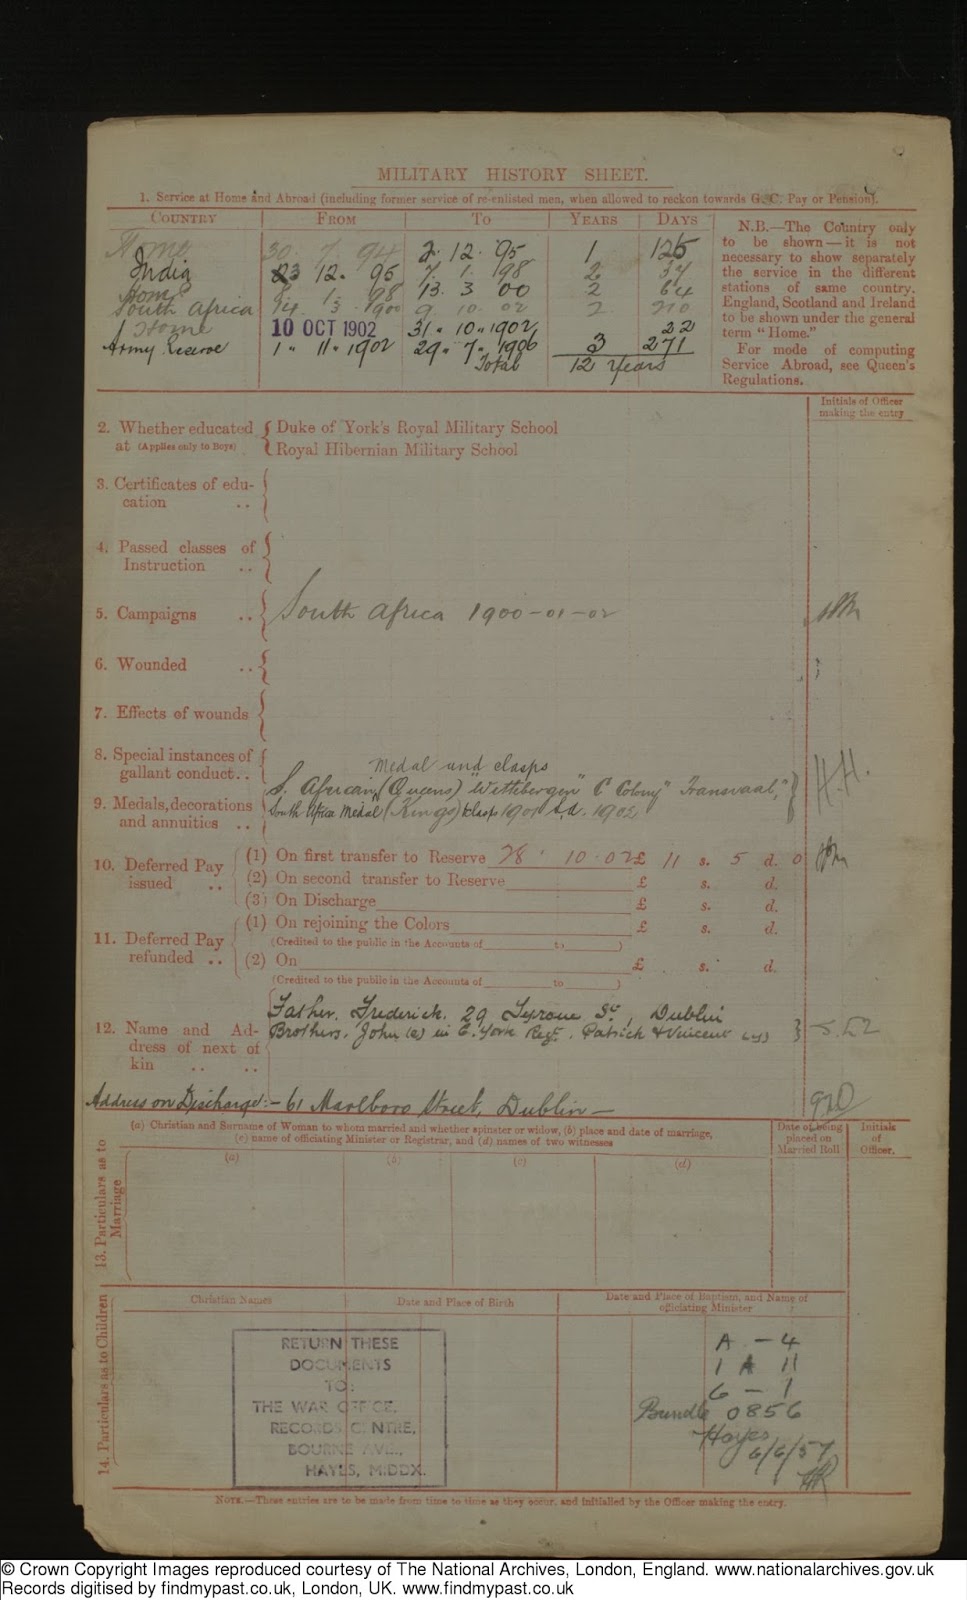 MILITARY HISTORY SHEET.
1. Service at Home and Abroad (including former service of re-enlisted men, when allowed to reckon towards G. C. Pay or Pension).
COUNTRY FROM TO YEARS DAYS
Home 30 7 94 2. 12. 95 1 125
India 3 12. 95 7. 1. 98 2 37
Home 8 1 98 13. 3 00 2 64
South Africa 14 3 1900 9. 10. 02 2 210
Home 10 OCT 1902 31. 10. 1902 22
Army Reserve 1 " 11 " 1902 29. 7. 1906 3 271
Total 12 Years
N.B.—The Country only
to be shown—it is not
necessary to show separately
the service in the different
stations of same country.
England, Scotland and Ireland
to be shown under the general
term "Home."
For mode of computing
Service Abroad, see Queen's
Regulations.
Initials of Officer
making the entry
2. Whether educated at (Applies only to Boys) Duke of York's Royal Military School
Royal Hibernian Military School
3. Certificates of edu-
cation ..
4. Passed classes of
Instruction ..
5. Campaigns .. South Africa 1900-01-02
6. Wounded ..
7. Effects of wounds
8. Special instances of
gallant conduct..
medal and clasps
S. African (Queens) "Wittebergen" "C Colony" Transvaal,"
9. Medals, decorations
and annuities ..
South Africa Medal (Kings) clasps 1901 & 1902
10. Deferred Pay
issued ..
(1) On first transfer to Reserve 28. 10. 02 £ 11 s. 5 d. 0
(2) On second transfer to Reserve £ s. d.
(3) On Discharge £ s. d.
11. Deferred Pay
refunded ..
(1) On rejoining the Colors £ s. d.
(Credited to the public in the Accounts of to )
(2) On £ s. d.
(Credited to the public in the Accounts of to )
12. Name and Ad-
dress of next of
kin .. ..
Father, Frederick, 29 Tyrone St, Dublin
Brothers, John (e) in E. York Regt. Patrick & Vincent (y)
Address on Discharge:- 61 Marlboro Street, Dublin —
13. Particulars as to Marriage
(a) Christian and Surname of Woman to whom married and whether spinster or widow, (b) place and date of marriage,
(c) name of officiating Minister or Registrar, and (d) names of two witnesses
Date of being
placed on
Married Roll
Initials
of
Officer.
(a) (b) (c) (d)
14. Particulars as to Children
Christian Names Date and Place of Birth Date and Place of Baptism, and Name of
officiating Minister
RETURN THESE
DOCUMENTS
TO:
THE WAR OFFICE,
RECORDS CENTRE,
BOURNE AVE.,
HAYES, MIDDX.
A - 4
1 A 11
6 - 1
Bundle 0856
Hayes
6/6/57
NOTE.—These entries are to be made from time to time as they occur, and initialled by the Officer making the entry.
© Crown Copyright Images reproduced courtesy of The National Archives, London, England. www.nationalarchives.gov.uk
Records digitised by findmypast.co.uk, London, UK. www.findmypast.co.uk